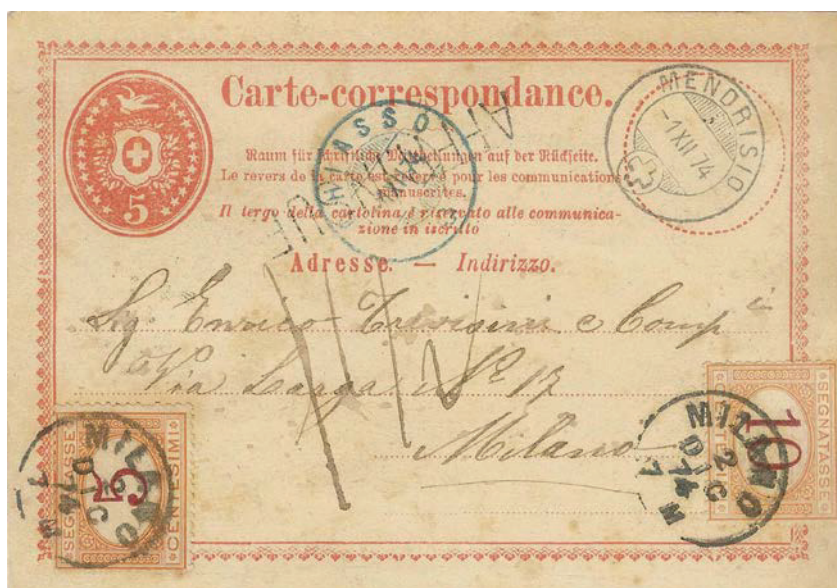 Carte-correspondance.
5
Raum für schriftliche Mittheilungen auf der Rückseite.
Le revers de la carte est réservé pour les communications
manuscrites.
Il tergo della cartolina è riservato alle communica-
zione in iscritto
Adresse. — Indirizzo.
MENDRISIO
-1 XII 74
CHIASSO
Sig. Enrico Trevisini e Comp i
Via Larga No 17
Milano
SEGNATASSE
5
CENTESIMI
MILANO
2
DIC
74
M
SEGNATASSE
10
CENTESIMI
MILANO
2
DIC
74
M